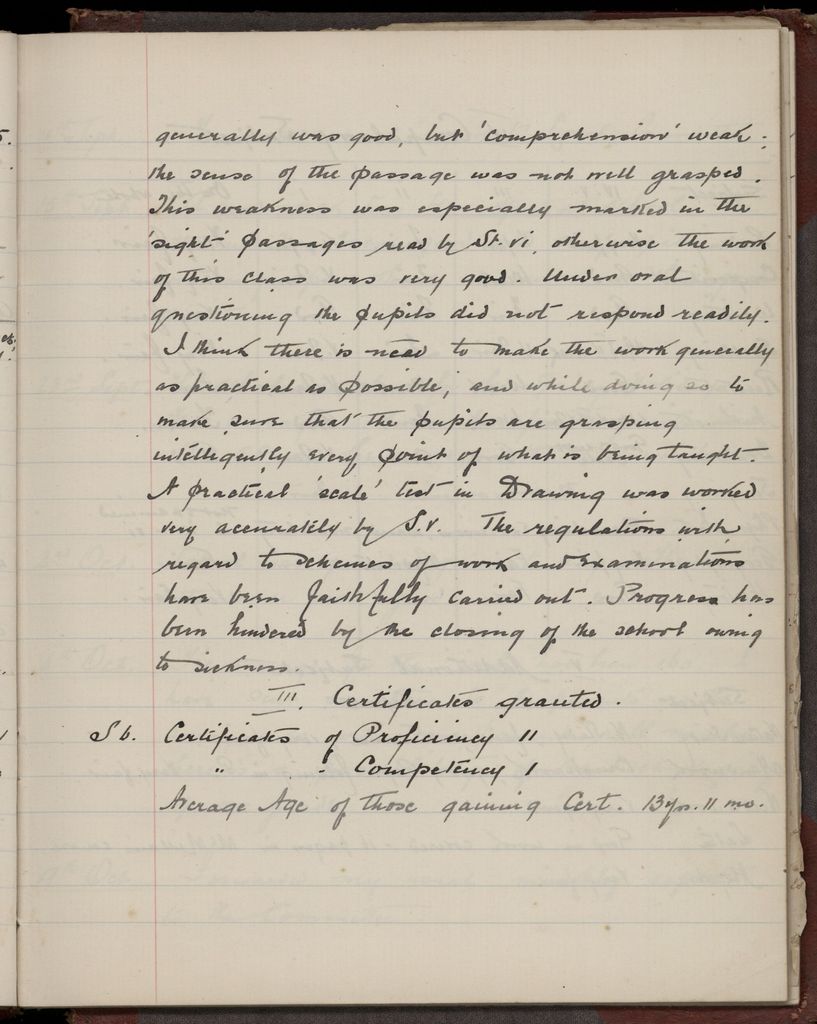 generally was good, but 'comprehension' weak;
the sense of the passage was not well grasped.
This weakness was especially marked in the
'sight' passages read by St. VI, otherwise the work
of this class was very good. Under oral
questioning the pupils did not respond readily.
I think there is need to make the work generally
as practical as possible, and while doing so to
make sure that the pupils are grasping
intelligently every point of what is being taught.
A practical 'scale' test in Drawing was worked
very accurately by S.V. The regulations with
regard to schemes of work and examinations
have been faithfully carried out. Progress has
been hindered by the closing of the school owing
to sickness.
III. Certificates granted.
S 6. Certificates of Proficiency 11
" " Competency 1
Average Age of those gaining Cert. 13 yrs. 11 mo.